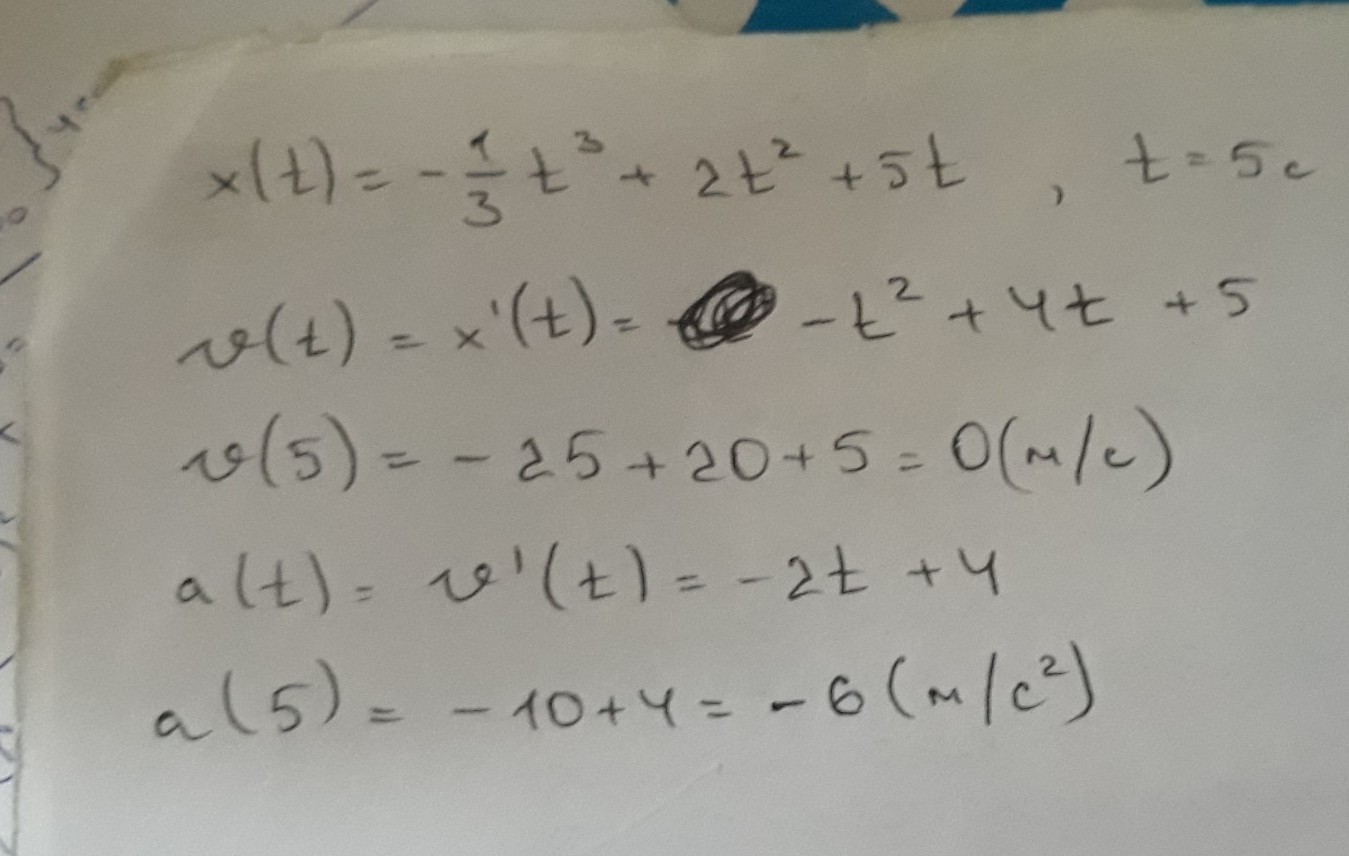 x(t) = - 1/3 t³ + 2t² + 5t , t = 5c
v(t) = x'(t) = - t² + 4t + 5
v(5) = - 25 + 20 + 5 = 0 (м/с)
a(t) = v'(t) = - 2t + 4
a(5) = - 10 + 4 = - 6 (м/с²)